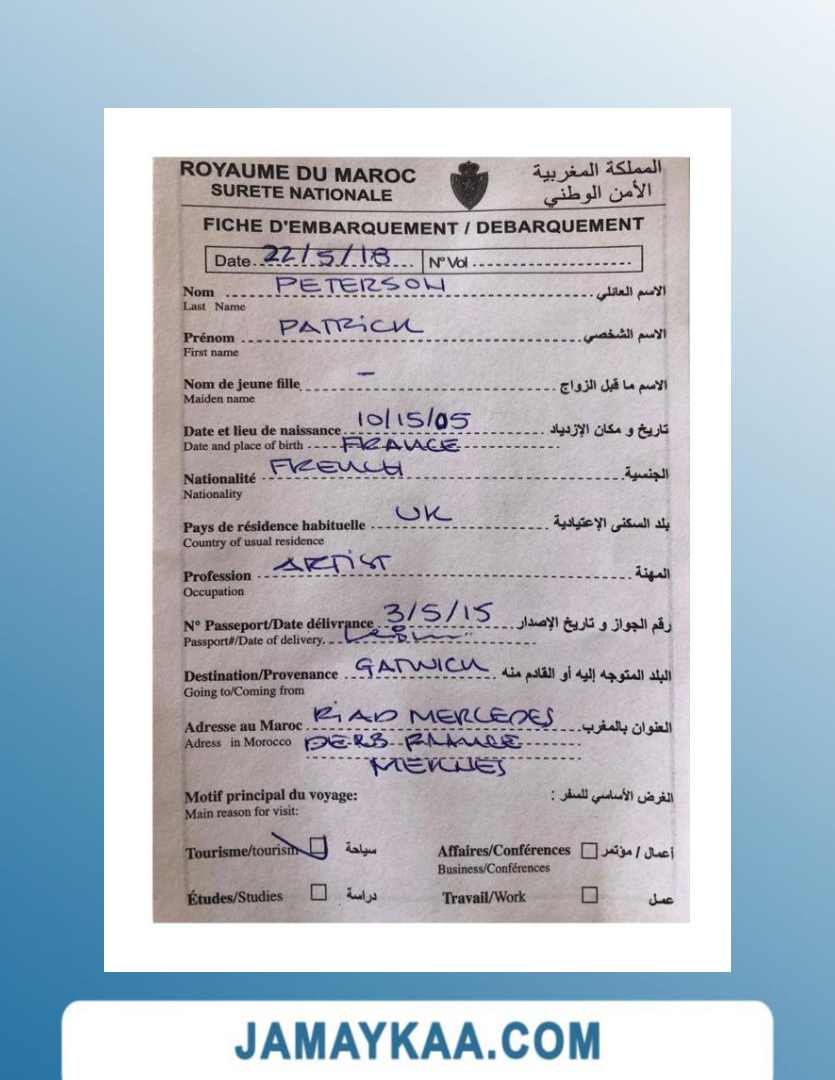 ROYAUME DU MAROC المملكة المغربية
SURETE NATIONALE الأمن الوطني
FICHE D'EMBARQUEMENT / DEBARQUEMENT
Date 22/5/18 N° Vol
Nom PETERSON الاسم العائلي
Last Name
Prénom PATRICK الاسم الشخصي
First name
Nom de jeune fille - الاسم ما قبل الزواج
Maiden name
Date et lieu de naissance 10/15/05 تاريخ و مكان الإزدياد
Date and place of birth FRANCE
Nationalité FRENCH الجنسية
Nationality
Pays de résidence habituelle UK بلد السكنى الإعتيادية
Country of usual residence
Profession ARTIST المهنة
Occupation
N° Passeport/Date délivrance 3/5/15 رقم الجواز و تاريخ الإصدار
Passport#/Date of delivery
Destination/Provenance GATWICK البلد المتوجه إليه أو القادم منه
Going to/Coming from
Adresse au Maroc RIAD MERCEDES العنوان بالمغرب
Adress in Morocco DERB
Motif principal du voyage: الغرض الأساسي للسفر :
Main reason for visit:
Tourisme/tourism سياحة Affaires/Conférences أعمال / مؤتمر
Business/Conférences
Études/Studies دراسة Travail/Work عمل
JAMAYKAA.COM